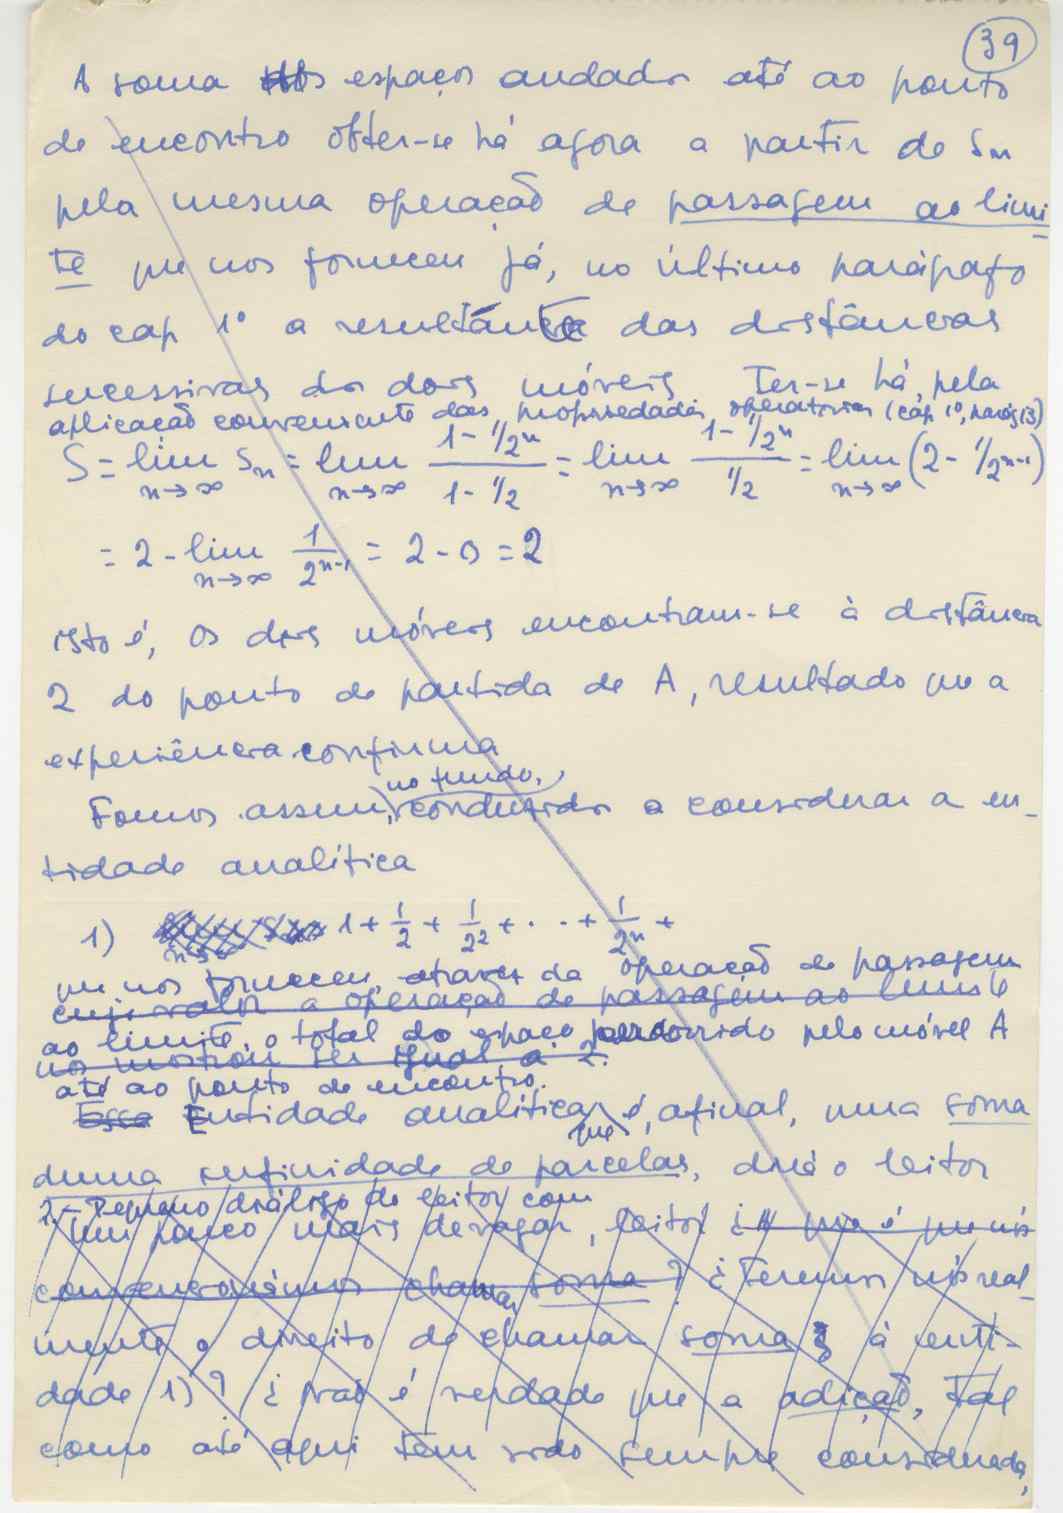 39
A soma dos espaços andados até ao ponto
de encontro obter-se há agora a partir de Sn
pela mesma operação de passagem ao limi
te que nos forneceu já, no último parágrafo
do cap 1º a resultante das distâncias
sucessivas dos dois móveis Ter-se há, pela
aplicação conveniente das propriedades operatórias (cap 1º, parág 13)
S = lim n→∞ Sn = lim n→∞ (1 - 1/2^n)/(1 - 1/2) = lim n→∞ (1 - 1/2^n)/(1/2) = lim n→∞ (2 - 1/2^{n-1})
= 2 - lim n→∞ 1/2^{n-1} = 2 - 0 = 2
isto é, os dois móveis encontram-se à distância
2 do ponto de partida de A, resultado que a
experiência confirma
no fundo,
Fomos assim, conduzidos a considerar a en-
tidade analítica
1) 1 + 1/2 + 1/2^2 + . . . + 1/2^n +
que nos forneceu, através da operação de passagem
cujo valor a operação de passagem ao limite
ao limite, o total do espaço percorrido pelo móvel A
nos mostrou ser igual a 2.
até ao ponto de encontro.
Essa Entidade analítica que é, afinal, uma soma
duma infinidade de parcelas, dirá o leitor
2 - Pequeno diálogo do leitor com
Um pouco mais devagar, leitor! ¿ que é que nós
convencionámos chamar soma? ¿ Teremos nós real-
mente o direito de chamar soma à enti-
dade 1)? ¿ Não é verdade que a adição, tal
como até aqui tem sido sempre considerada,